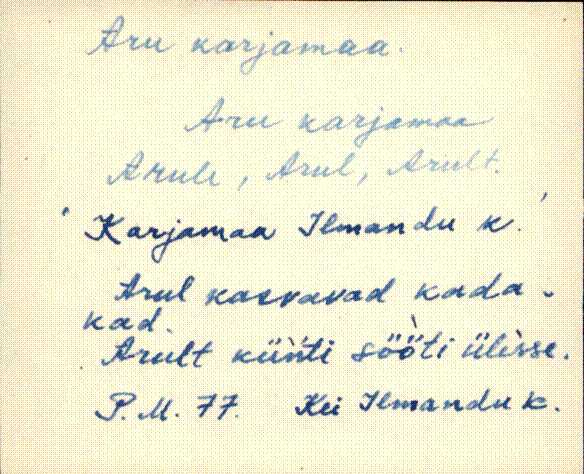 Aru karjamaa.
Aru karjamaa
Arule, Arul, Arult.
' Karjamaa Ilmandu k. '
Arul kasvavad kada-
kad.
Arult küǹti söö̀ti ülesse.
P.M. 77. Kei Ilmandu k.